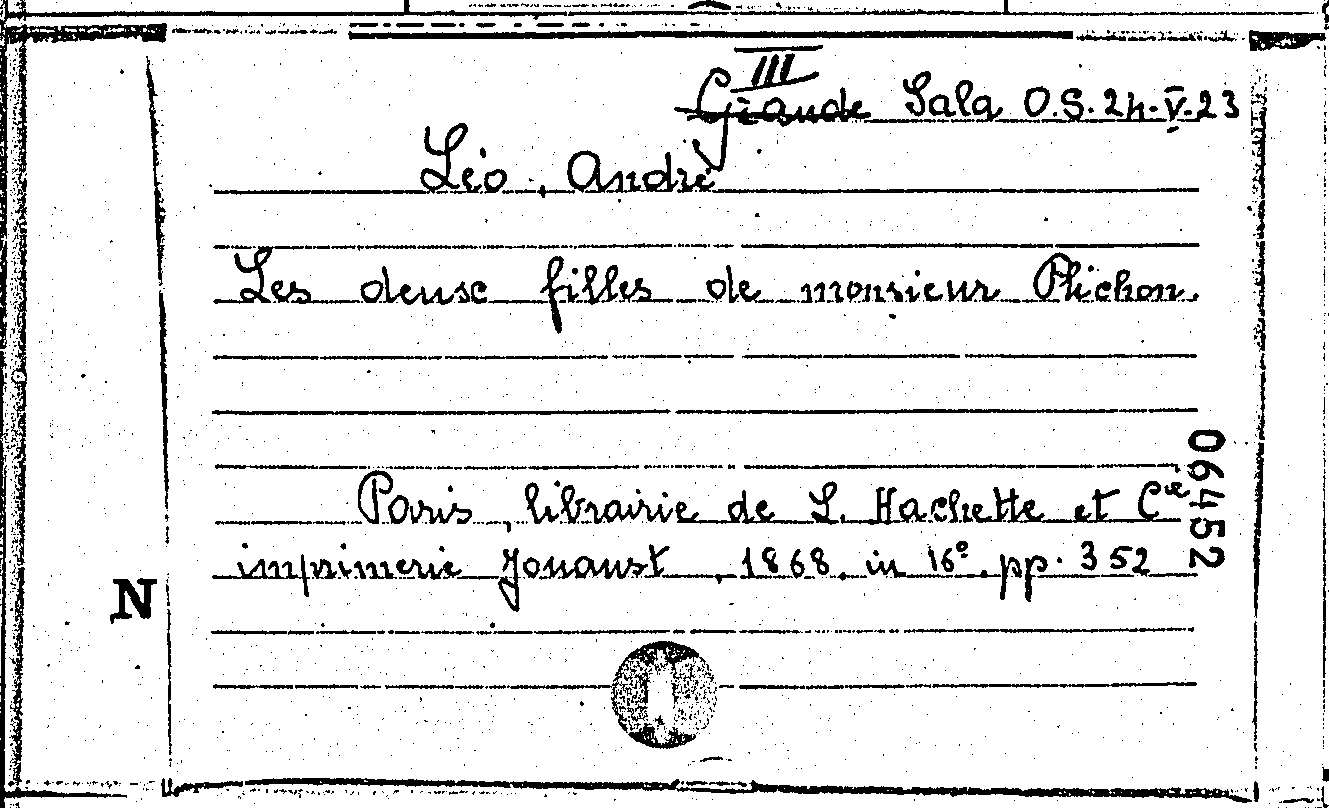 III
Grande Sala O.S. 24.V.23
Léo, André
Les deux filles de monsieur Plichon.
Paris, librairie de L. Hachette et Cie
imprimerie Jouaust, 1868. in 16º. pp. 352
06452
N